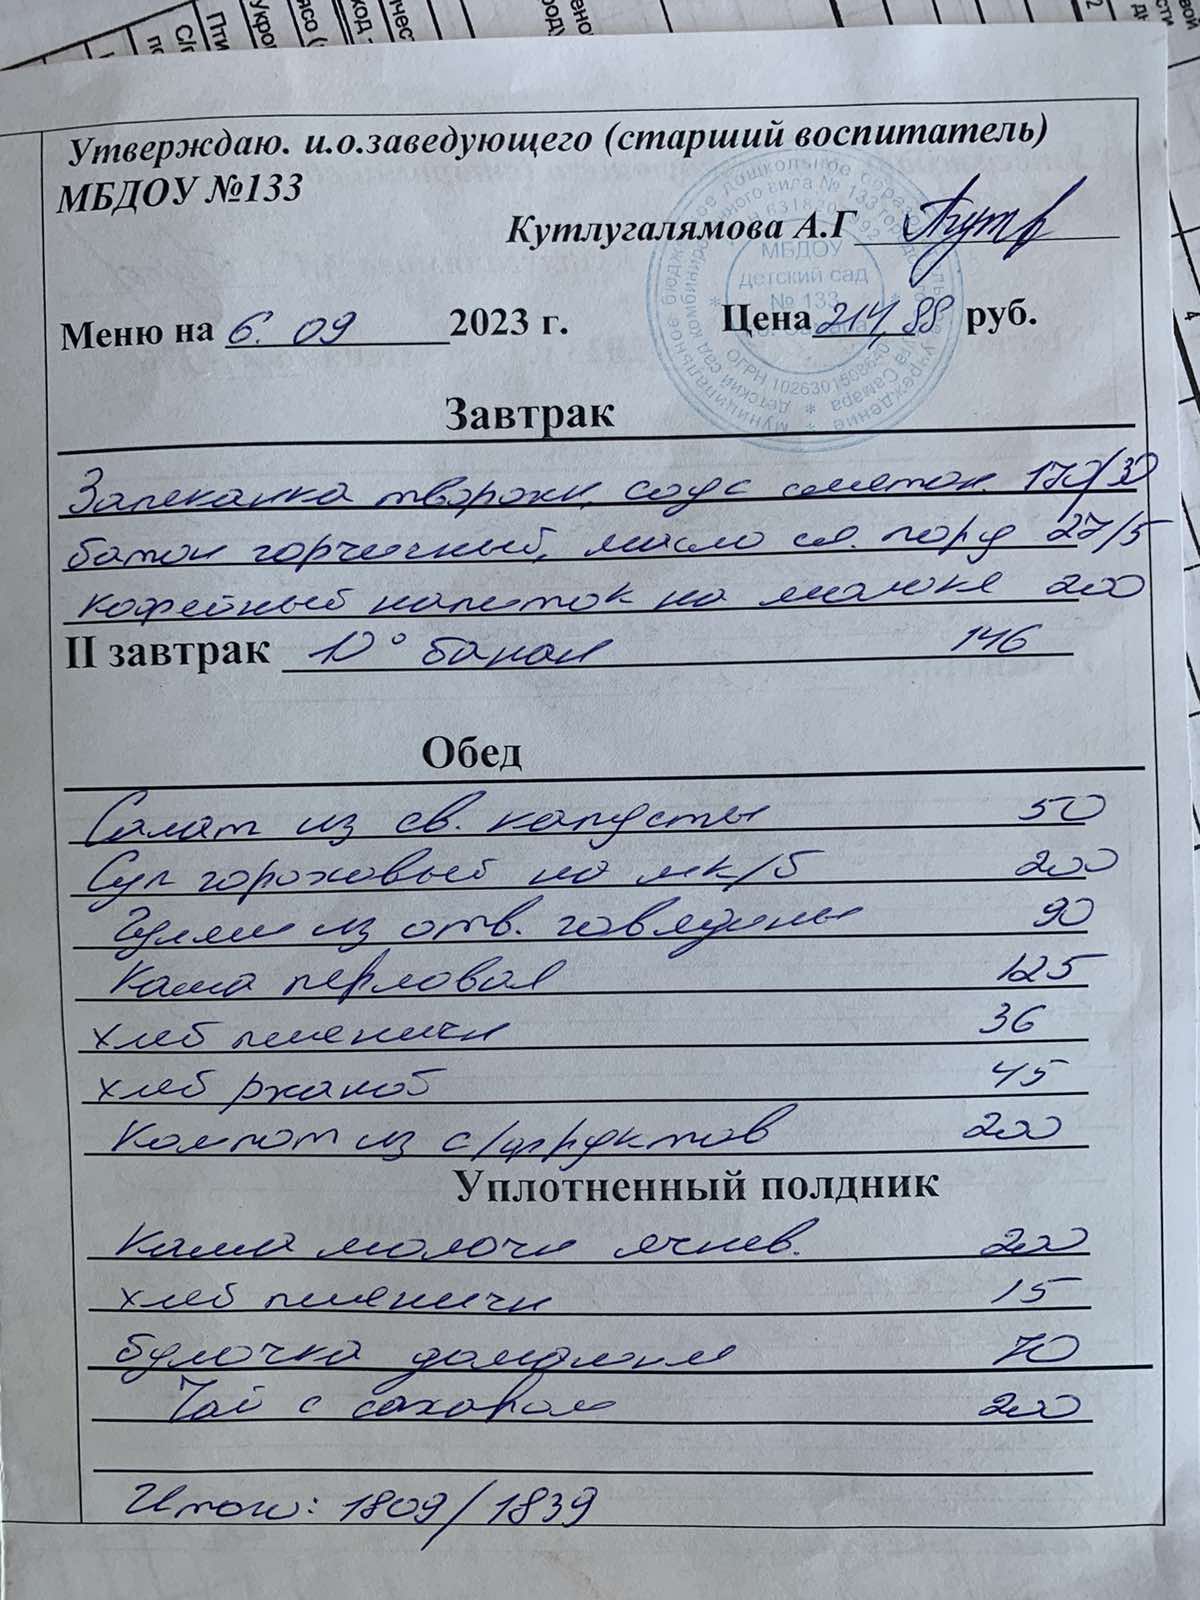 Утверждаю. и.о.заведующего (старший воспитатель)
МБДОУ №133
Кутлугалямова А.Г
МБДОУ
детский сад
№ 133
Меню на 6. 09 2023 г. Цена 214,88 руб.
Завтрак
Запеканка творожн, соус сметан. 170/30
батон горчичный, масло сл. порц 27/5
кофейный напиток на молоке 200
II завтрак 10° банан 146
Обед
Салат из св. капусты 50
Суп гороховый на мк/б 200
Гуляш из отв. говядины 90
Каша перловая 125
хлеб пшеничн 36
хлеб ржаной 45
Компот из с/фруктов 200
Уплотненный полдник
Каша молочн ячнев. 200
хлеб пшеничн 15
булочка домашня 70
Чай с сахаром 200
Итого: 1809/1839